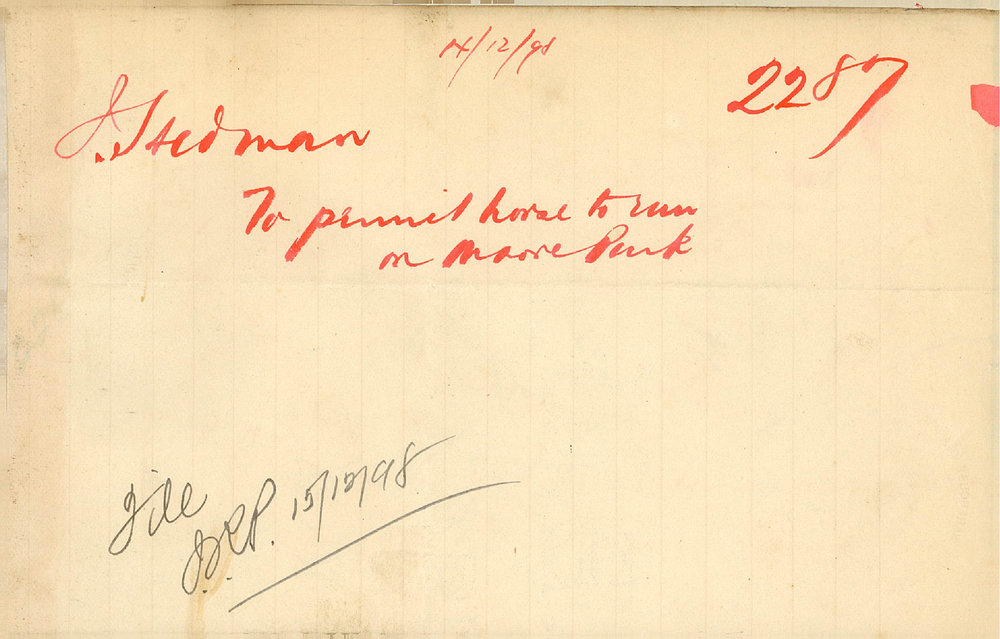 14/12/98
2287
J. Stedman
To permit horse to run
on Moore Park
File
15/12/98